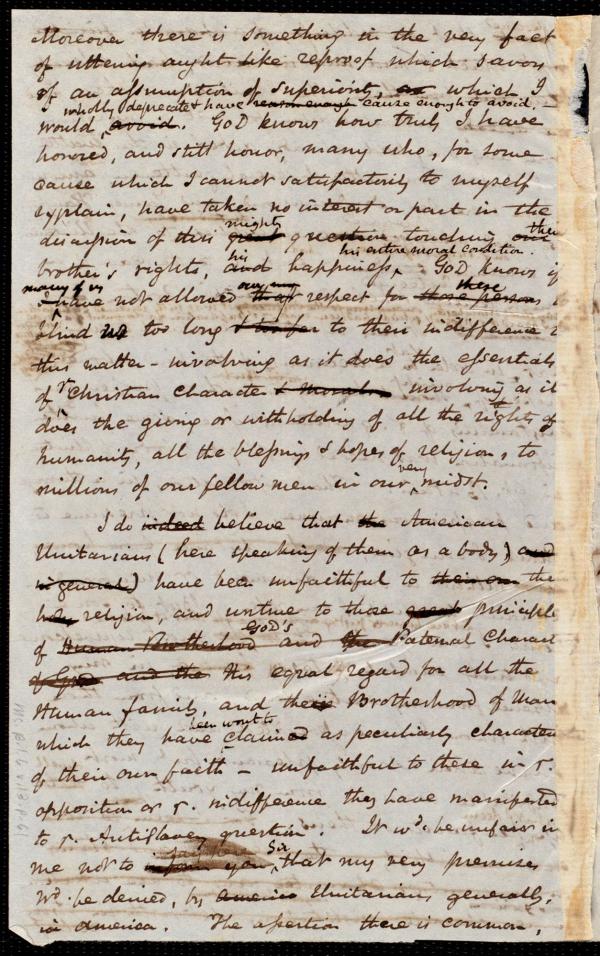 Moreover there is something in the very fact
of uttering aught like reproof which savors
of an assumption of superiority, as which I
wholly deprecate & have reason enough cause enough to avoid.
would avoid. God knows how truly I have
honored, and still honor, many who, for some
cause which I cannot satisfactorily to myself
explain, have taken no interest or part in the
mighty
discussion of this great question touching our their
his his entire moral condition.
brother's rights, and happiness. God knows if
many of us our own these
I have not allowed that respect for those persons
blind us too long to their indifference
this matter – involving as it does the essentials
of yr Christian character & morals involving as it
does the giving or withholding of all the rights of
humanity, all the blessings & hopes of religion, to
very
millions of our fellow men in our midst.
I do indeed believe that the American
Unitarians (here speaking of them as a body) and
in general) have been unfaithful to their own the
holy religion, and untrue to those great principl
God's
of Human Brotherhood and the Paternal Charact
of God and the His equal regard for all the
Human family, and their Brotherhood of Man
been wont to
which they have claimed as peculiarly character
of their own faith – unfaithful to these in ye.
opposition or ye. indifference they have manifested
to ye. Antislavery question. It wd. be unfair in
Sir,
me not to inform you that my very premises
wd. be denied, by America Unitarians generally,
in America. The assertion there is common,